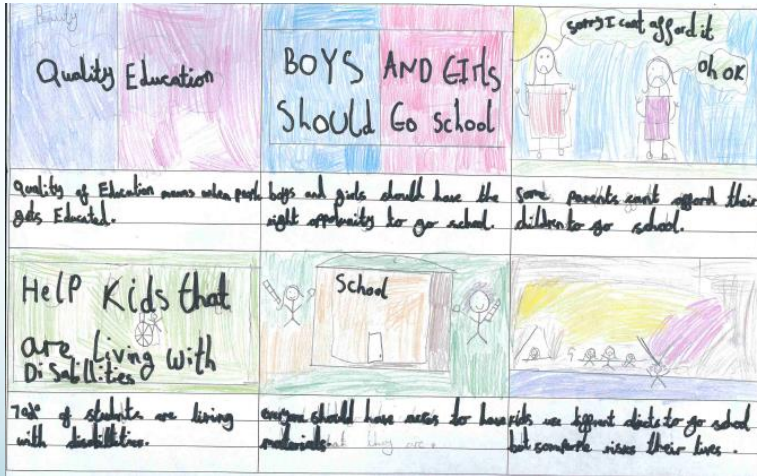 Quality Education
BOYS AND GIRLS
SHOULD GO SCHOOL
sorry I cant afford it
oh ok
Quality of Education means when
gets Educated.
boys and girls should have the
right oppotunity to go school.
Some parents can't afford their
children to go school.
HELP KIDS that
are Living With
DiSabillities
School
of students are living
with disabillities.
everyone should have acces to have
materials.
kids use to go school
but some risks their lives.